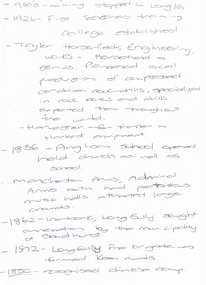 - 1950s - mining stopped in Long Gully
- 1926 - First Teachers training
College established
- Taylor Horsfields Engineering
works - Horsfield a
genius. Pioneered
production of compressed
rock drills, specialised
in rock and drills
exported them throughout
the world.
- Manufacture
equipment
- 1856 - Anglican school opened
held church as well as
school
- Manchester Arms, Admiral
Arms both had
music halls attracted large
crowds.
- 1862 - Ironbark, Long Gully sought
annexation by the municipality
of Sandhurst
- 1872 - Long Gully Fire brigade was
formed
- 1856 - recognised chinese camp